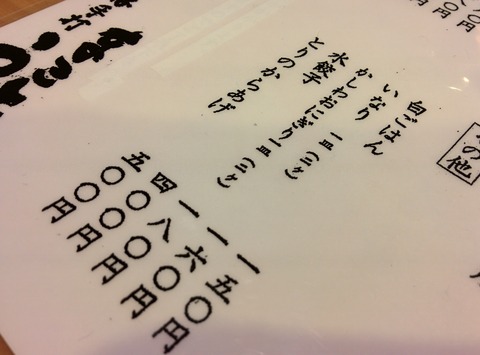 の他
白ごはん 一五〇円
いなり 一皿(二ケ) 一六〇円
かしわおにぎり一皿(二ケ) 一八〇円
水餃子 四〇〇円
とりのからあげ 五〇〇円